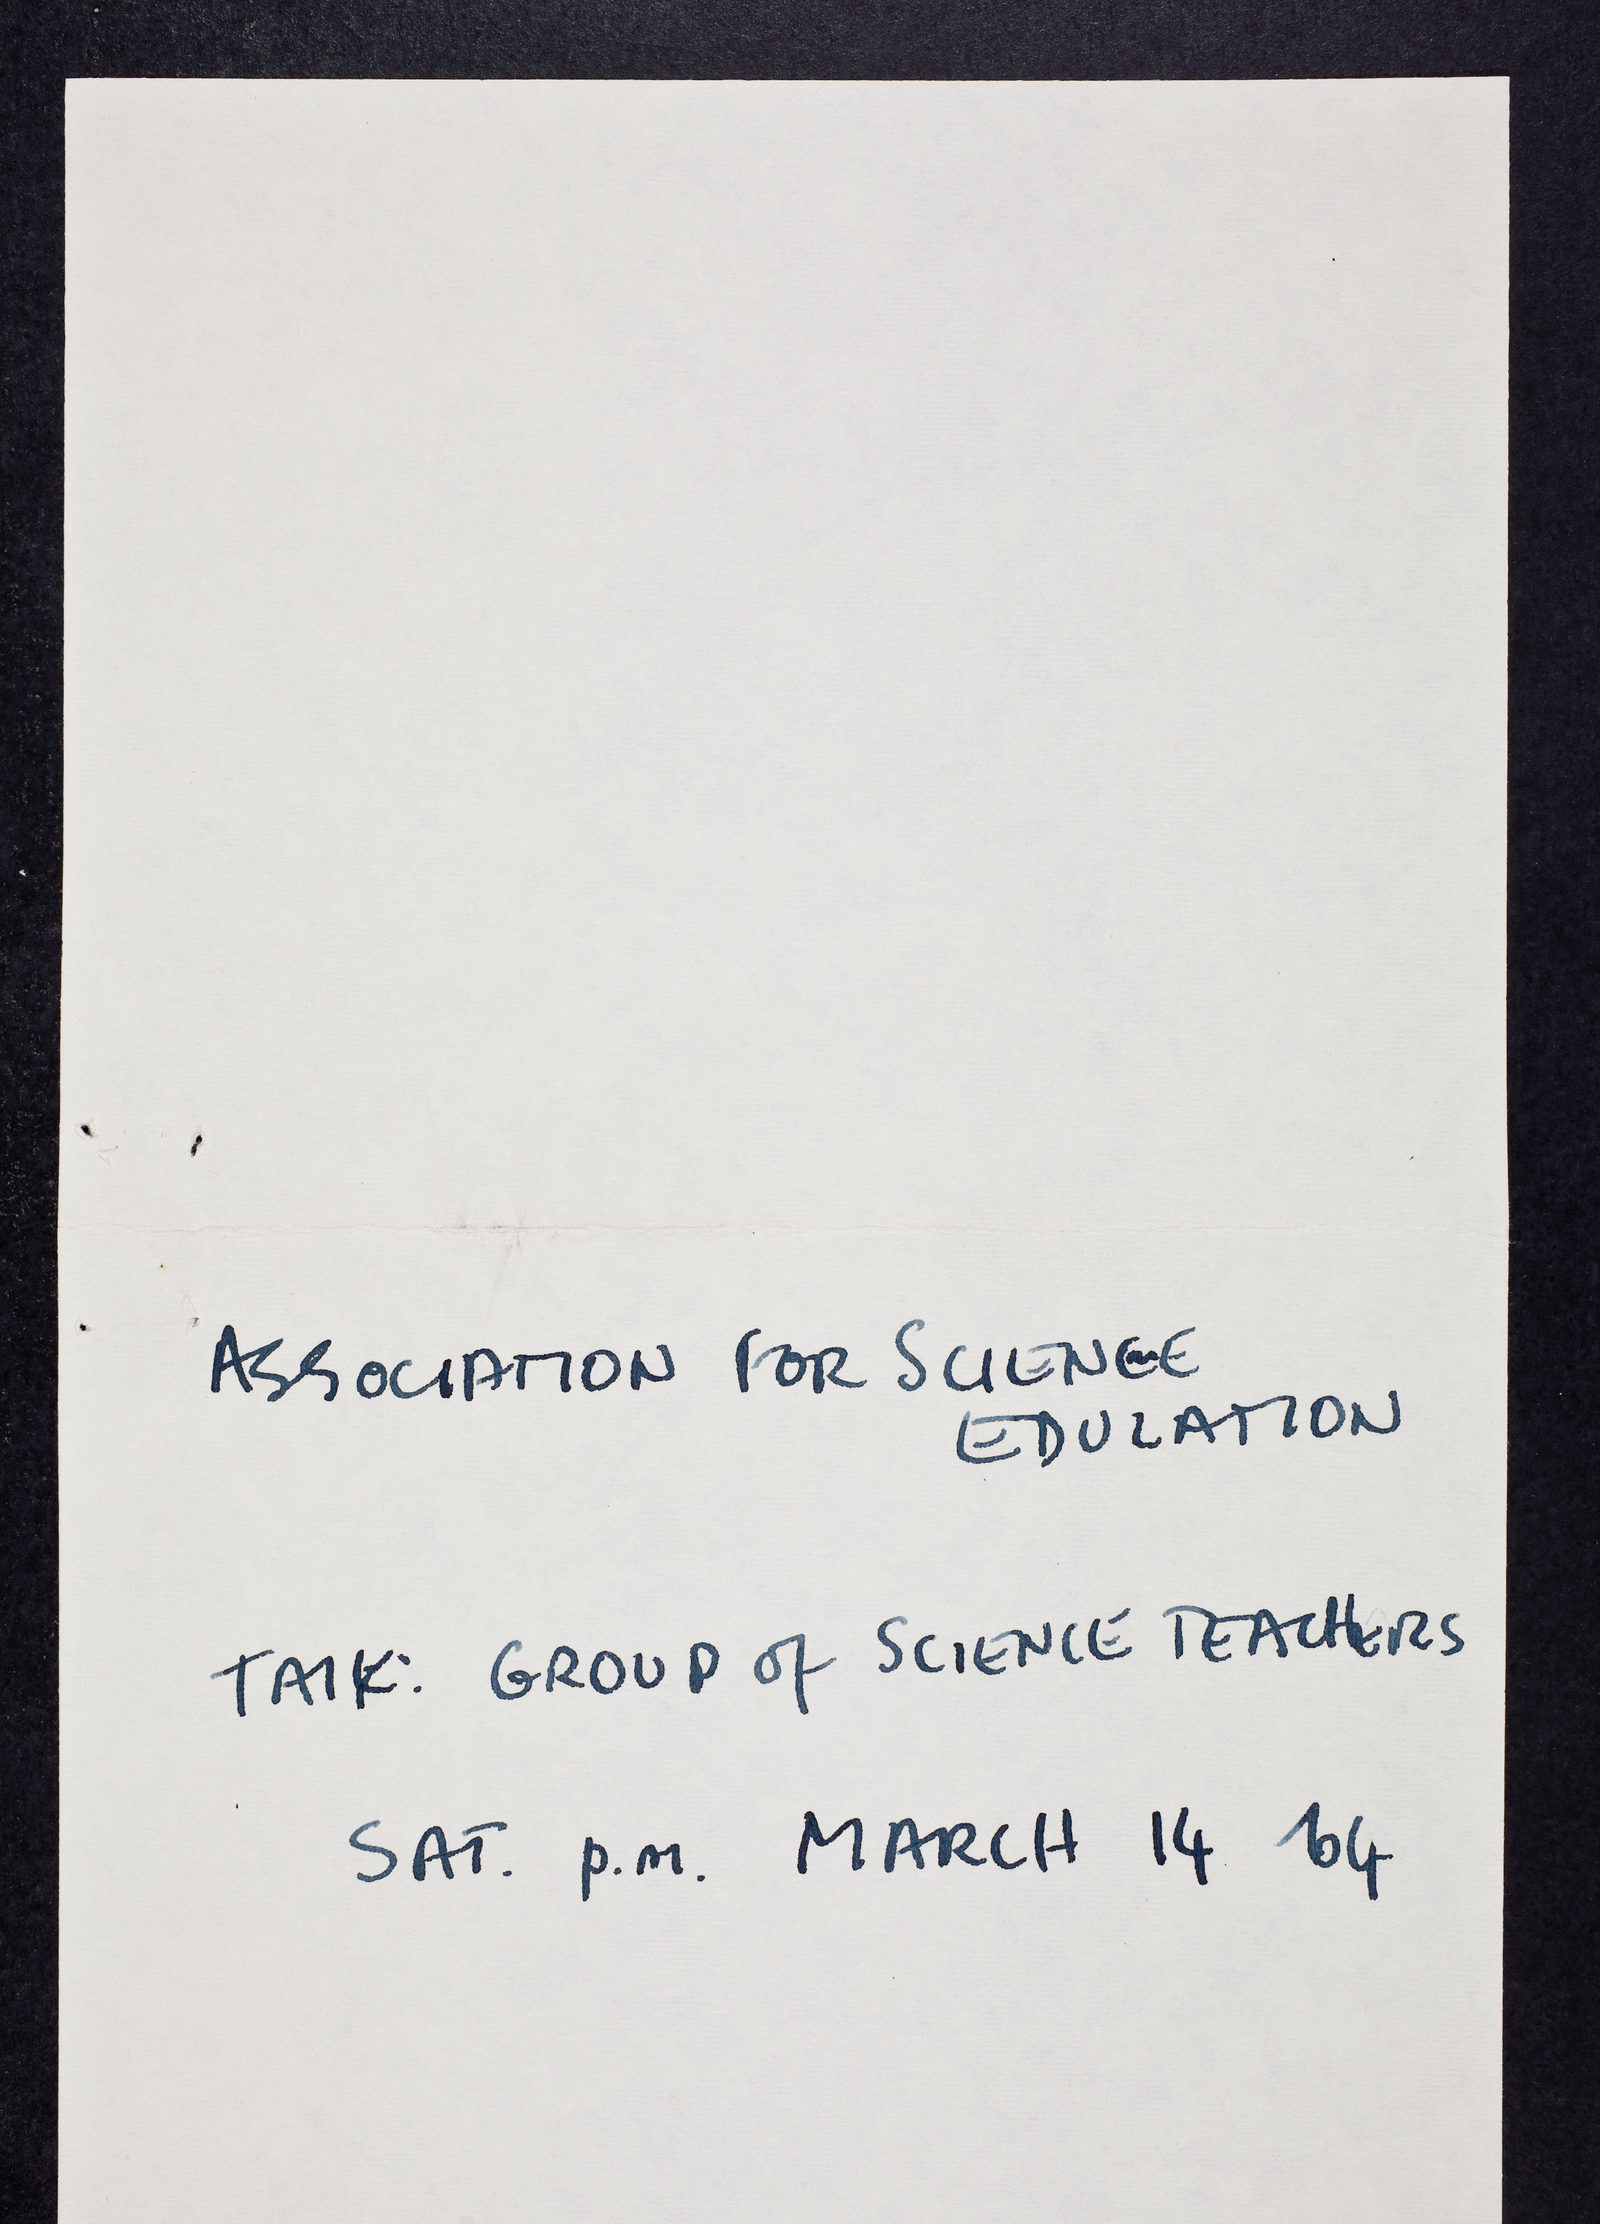 ASSOCIATION FOR SCIENCE
EDUCATION
TALK: GROUP of SCIENCE TEACHERS
SAT. p.m. MARCH 14 '64